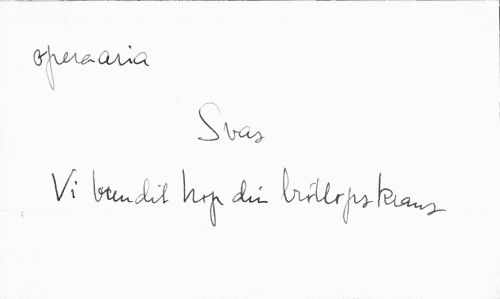 operaaria
Svas
Vi bundit hop din bröllopskrans